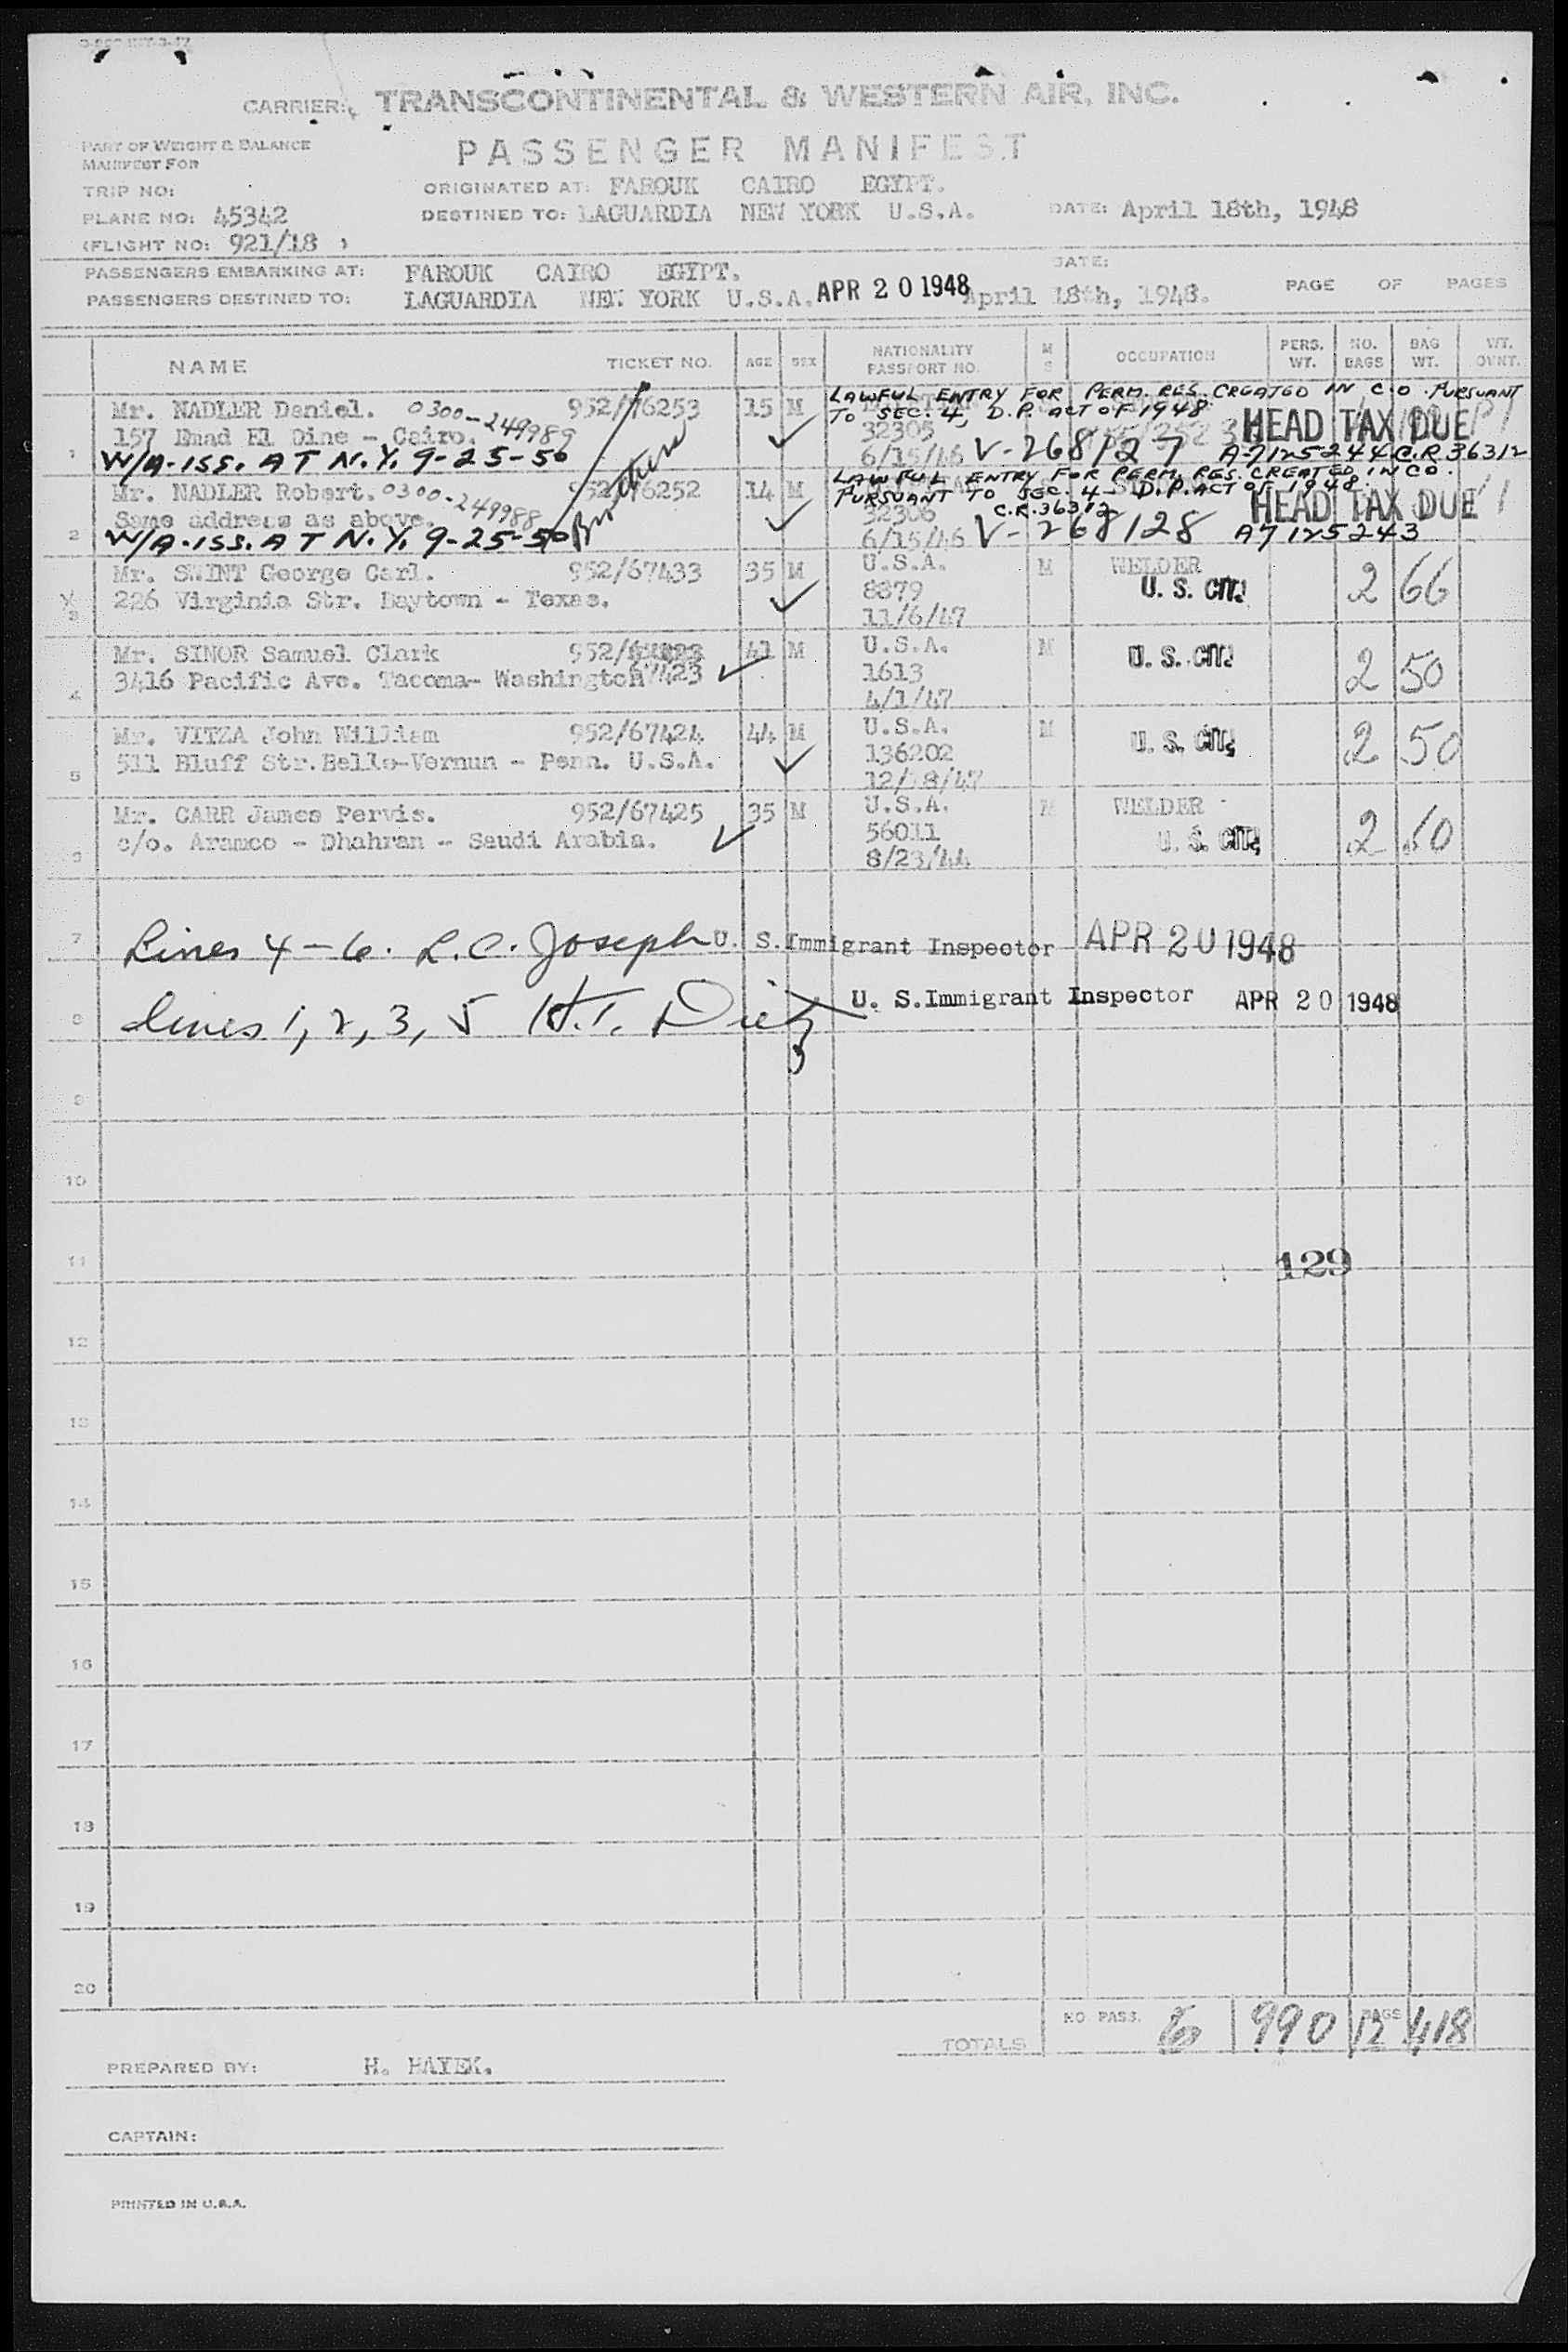 CARRIER: TRANSCONTINENTAL & WESTERN AIR, INC.
PART OF WEIGHT & BALANCE
MANIFEST FOR
PASSENGER MANIFEST
TRIP NO:
ORIGINATED AT: FAROUK CAIRO EGYPT.
PLANE NO: 45342
DESTINED TO: LAGUARDIA NEW YORK U.S.A.
DATE: April 18th, 1948
(FLIGHT NO: 921/18 )
PASSENGERS EMBARKING AT: FAROUK CAIRO EGYPT.
DATE:
PASSENGERS DESTINED TO: LAGUARDIA NEW YORK U.S.A. APR 20 1948 April 18th, 1948.
PAGE OF PAGES
NAME TICKET NO. AGE SEX NATIONALITY PASSPORT NO. M S OCCUPATION PERS. WT. NO. BAGS BAG WT. WT. OVNT.
LAWFUL ENTRY FOR PERM. RES. CREATED IN C.O. PURSUANT
TO SEC. 4, D.P. ACT OF 1948
1 Mr. NADLER Daniel. 0300-249989 952/76253 15 M
157 Emad El Dine - Cairo. 32305 HEAD TAX DUE
W/A-ISS. AT N.Y. 9-25-50 6/15/46 V-268127 A7125244 C.R 36312
Brothers
LAWFUL ENTRY FOR PERM. RES. CREATED IN CO.
PURSUANT TO SEC. 4- D.P. ACT OF 1948.
2 Mr. NADLER Robert. 0300-249988 952/76252 14 M
Same address as above. 32306 C.R.36312 HEAD TAX DUE
W/A-ISS. AT N.Y. 9-25-50 6/15/46 V-268128 A7125243
3 Mr. SWINT George Carl. 952/67433 35 M U.S.A. M WELDER
226 Virginia Str. Baytown - Texas. 8879 U. S. CIT. 2 66
11/6/47
4 Mr. SINOR Samuel Clark 952/67423 41 M U.S.A. M U. S. CIT.
3416 Pacific Ave. Tacoma- Washington 1613 2 50
4/1/47
5 Mr. VITZA John William 952/67424 44 M U.S.A. M U. S. CIT.
511 Bluff Str. Belle-Vernun - Penn. U.S.A. 136202 2 50
12/18/47
6 Mr. CARR James Pervis. 952/67425 35 M U.S.A. M WELDER
c/o. Aramco - Dhahran - Saudi Arabia. 56011 U. S. CIT. 2
8/23/44
7 Lines 4-6. L.C. Joseph U. S. Immigrant Inspector APR 20 1948
8 Lines 1, 2, 3, 5 H.T. Diez U. S. Immigrant Inspector APR 20 1948
9
10
11
129
12
13
14
15
16
17
18
19
20
TOTALS NO PASS. 6 990 BAGS 12 418
PREPARED BY: H. HAYEK.
CAPTAIN:
PRINTED IN U.S.A.